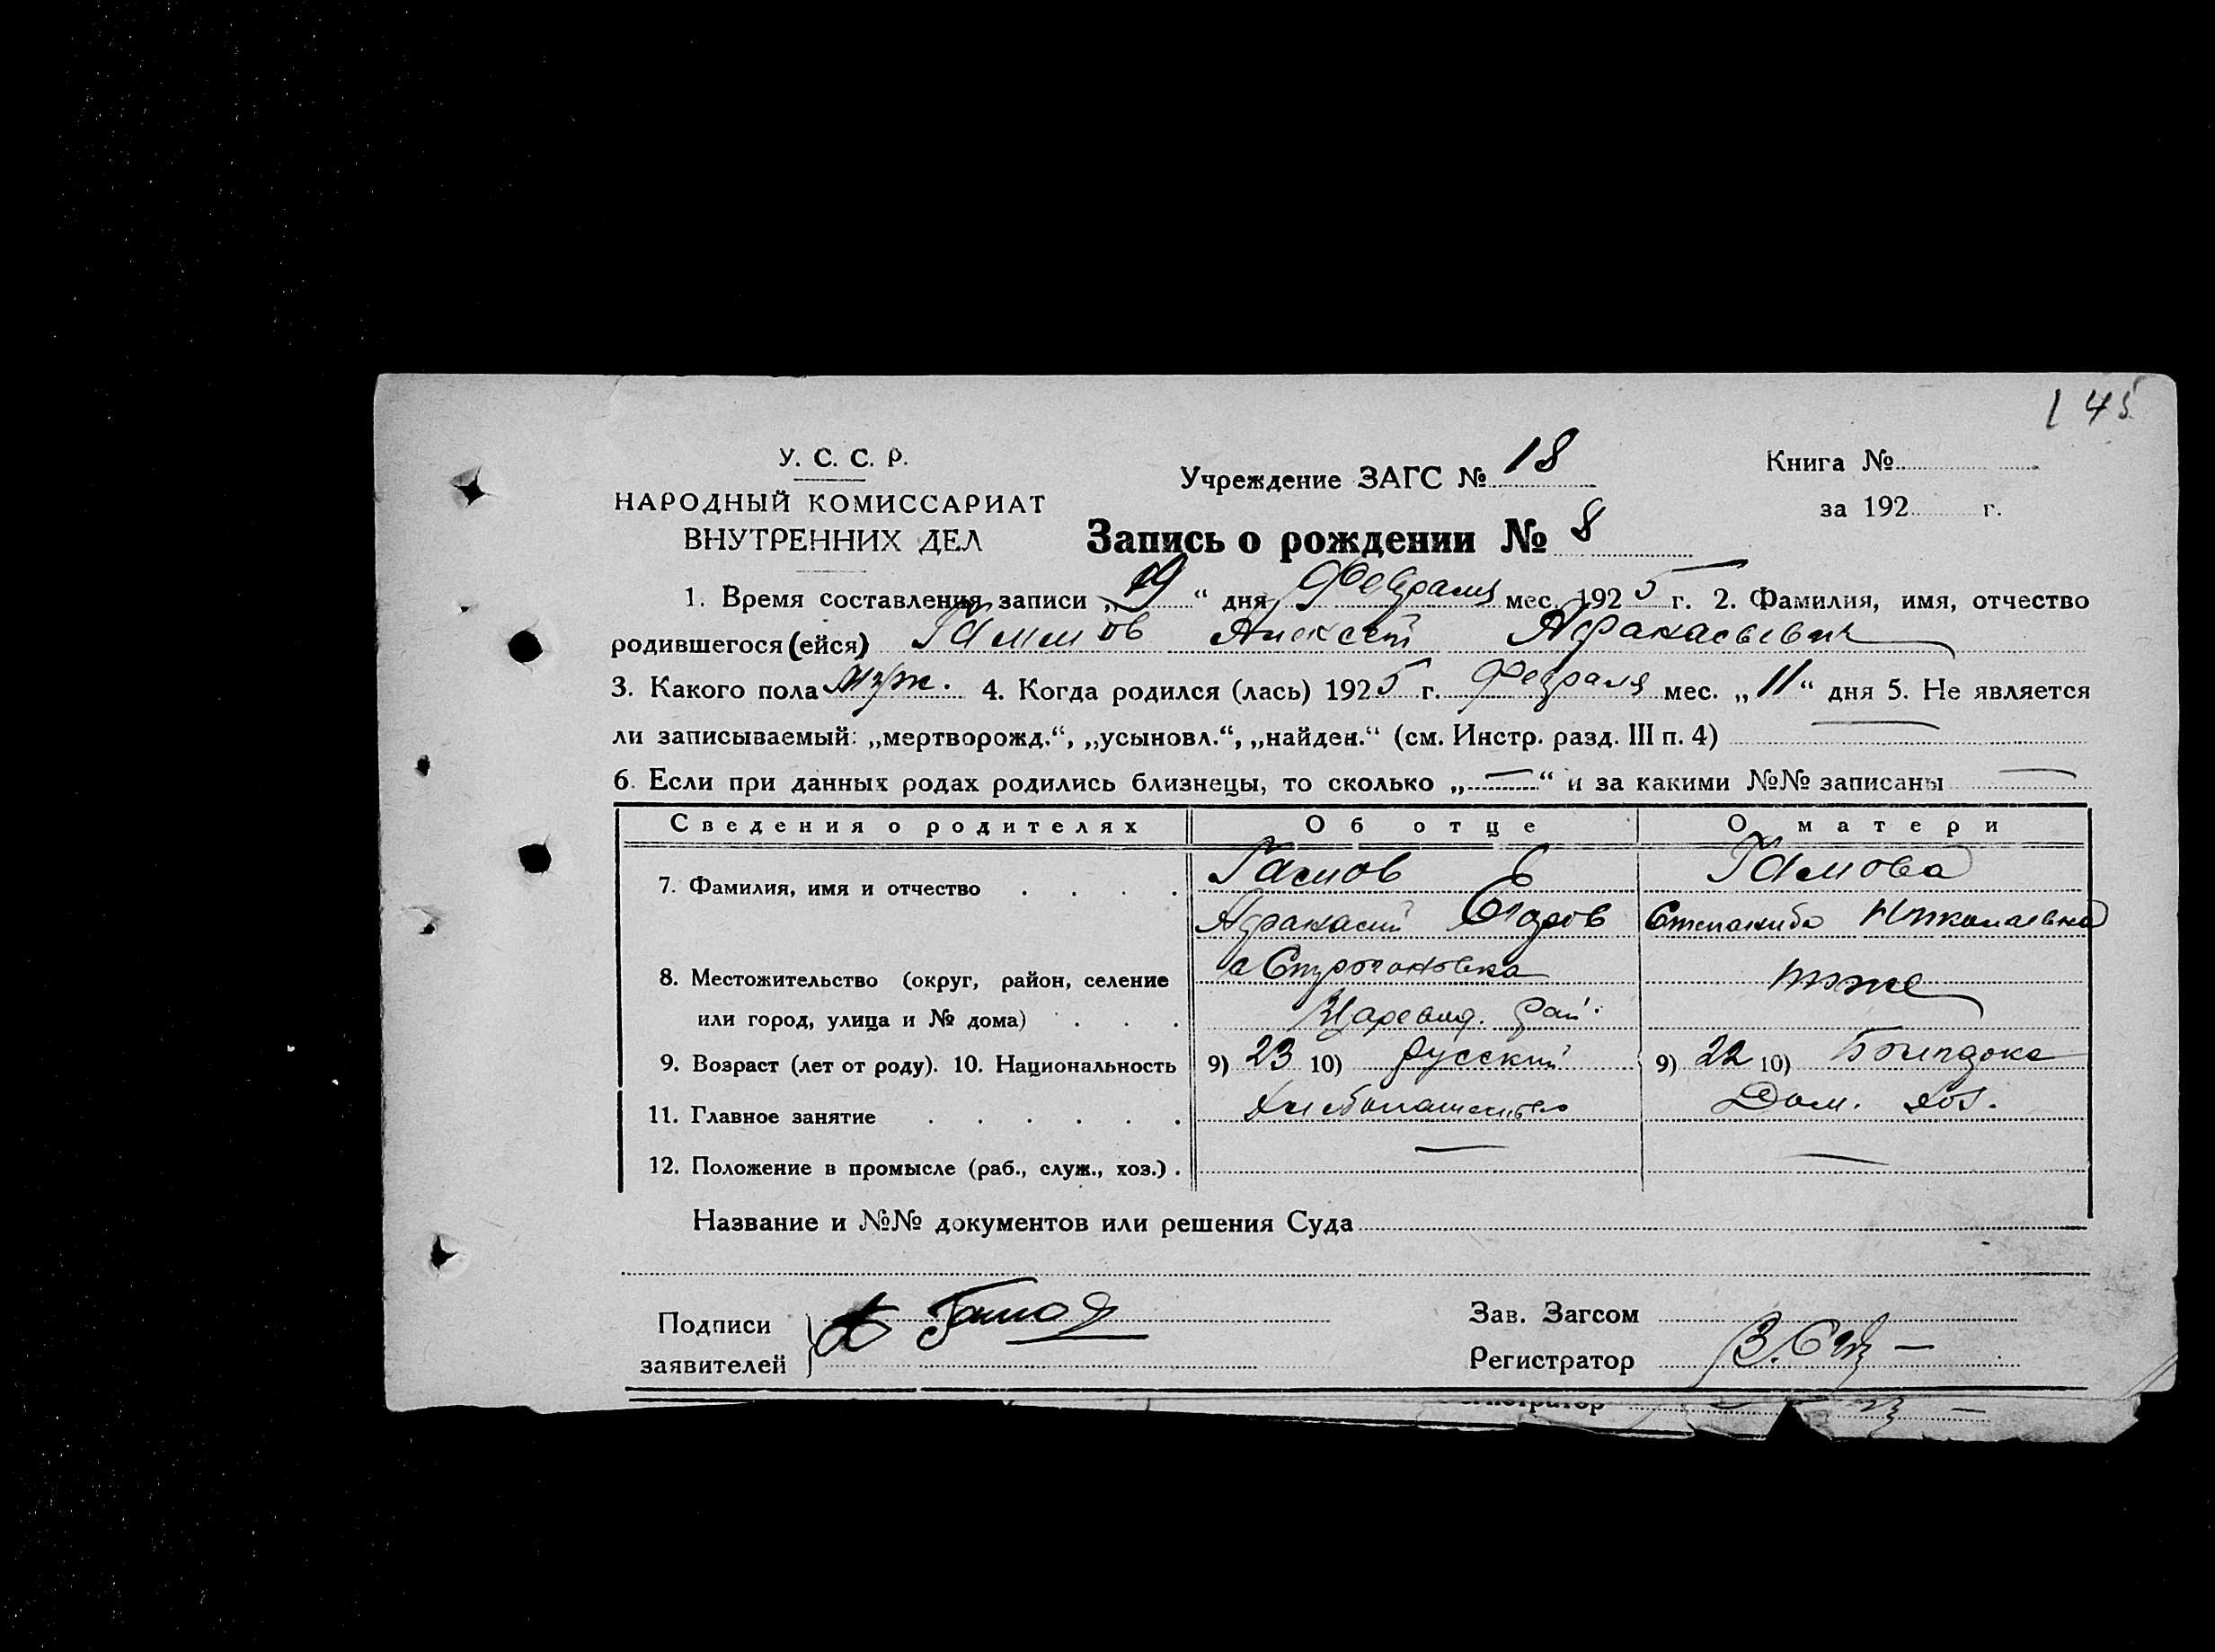 145
У. С. С. Р.
НАРОДНЫЙ КОМИССАРИАТ
ВНУТРЕННИХ ДЕЛ
Учреждение ЗАГС № 18
Книга №
за 192 г.
Запись о рождении № 8
1. Время составления записи „19“ дня Февраля мес. 1925 г. 2. Фамилия, имя, отчество
родившегося (ейся) Гамов Алексей Афанасьевич
3. Какого пола муж. 4. Когда родился (лась) 1925 г. Февраля мес. „11“ дня 5. Не является
ли записываемый: „мертворожд.“, „усыновл.“, „найден.“ (см. Инстр. разд. III п. 4) —
6. Если при данных родах родились близнецы, то сколько „—“ и за какими №№ записаны —
Сведения о родителях Об отце О матери
7. Фамилия, имя и отчество . . . . Гамов Гамова
Афанасий Егоров Степанида Николаевна
8. Местожительство (округ, район, селение с Строгоновка тоже
или город, улица и № дома) . . . рай.
9. Возраст (лет от роду). 10. Национальность 9) 23 10) русский 9) 22 10)
11. Главное занятие . . . . . . Дом. хоз.
12. Положение в промысле (раб., служ., хоз.) . — —
Название и №№ документов или решения Суда
Подписи
заявителей
А Гамов
Зав. Загсом
Регистратор
Регистратор